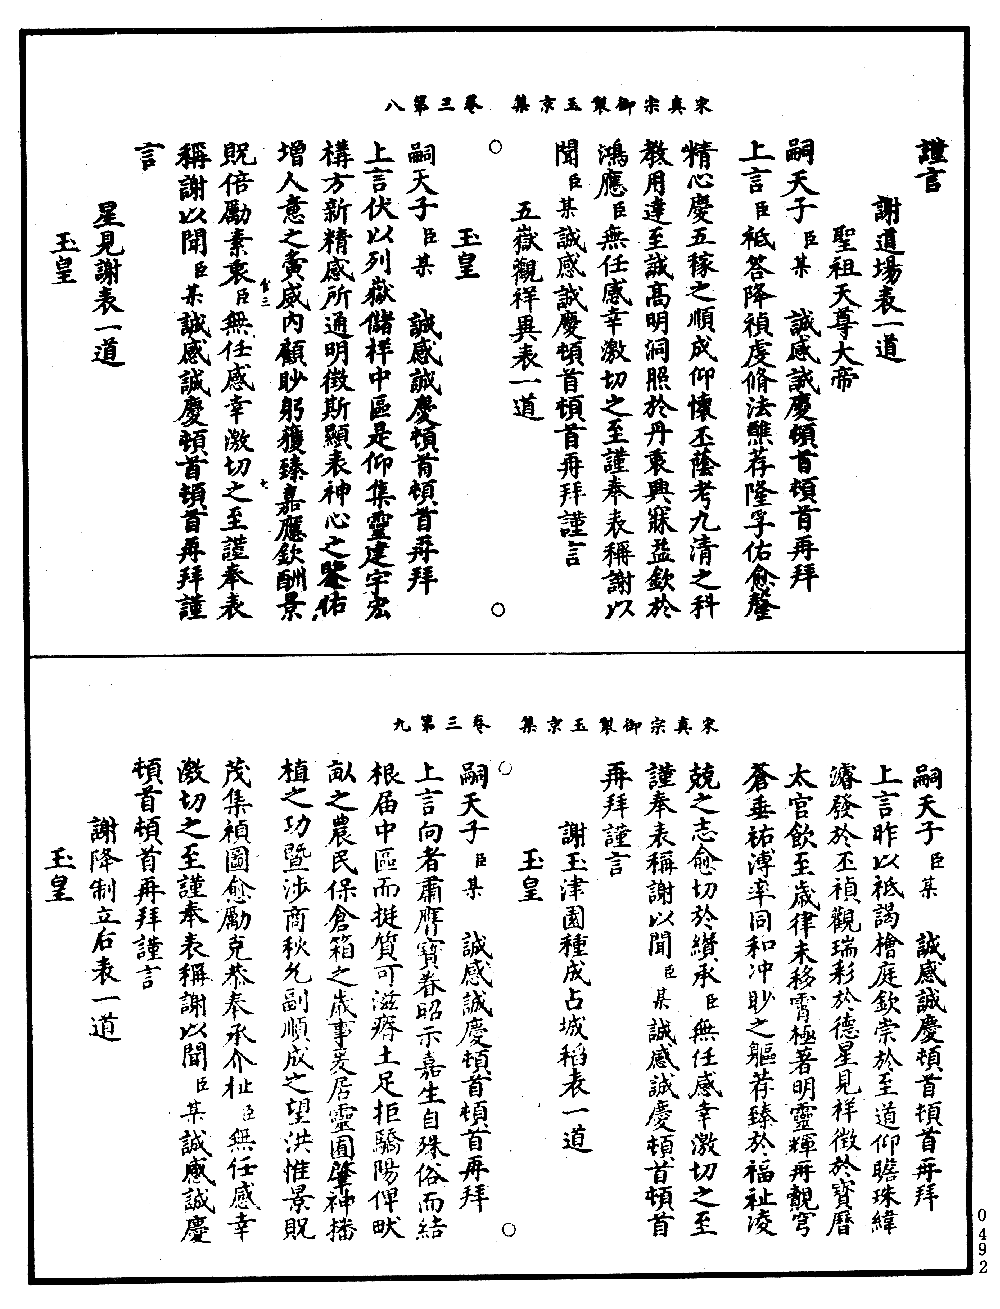 宋真宗御製玉京集　卷三第八
謹言
謝道場表一道
聖祖天尊大帝
嗣天子臣某　誠感誠慶頓首頓首再拜
上言臣祗答降禎虔脩法醮荐隆孚佑愈罄
精心慶五稼之順成仰懷丕蔭考九清之科
教用達至誠高明洞照於丹衷興寐益欽於
鴻應臣無任感幸激切之至謹奉表稱謝以
聞臣某誠感誠慶頓首頓首再拜謹言
五嶽觀祥異表一道
玉皇
嗣天子臣某　誠感誠慶頓首頓首再拜
上言伏以列嶽儲祥中區是仰集靈建宇宏
構方新精感所通明徵斯顯表神心之鑒佑
增人意之夤威內顧眇躬獲臻嘉應欽酬景
貺倍勵素衷臣無任感幸激切之至謹奉表
稱謝以聞臣某誠感誠慶頓首頓首再拜謹
言
星見謝表一道
玉皇
宋真宗御製玉京集　卷三第九
嗣天子臣某　誠感誠慶頓首頓首再拜
上言昨以祗謁檜庭欽崇於至道仰瞻珠緯
濬發於丕禎觀瑞彩於德星見祥徵於寶曆
太官飲至歲律未移霄極著明靈輝再靚穹
蒼垂祐溥率同和冲眇之軀荐臻於福祉凌
兢之志愈切於纘承臣無任感幸激切之至
謹奉表稱謝以聞臣某誠感誠慶頓首頓首
再拜謹言
謝玉津園種成占城稻表一道
玉皇
嗣天子臣某　誠感誠慶頓首頓首再拜
上言向者肅膺寶眷昭示嘉生自殊俗而結
根届中區而挺質可滋瘠土足拒驕陽俾畎
畝之農民保倉箱之歲事爰居靈囿肇神播
植之功暨涉商秋允副順成之望洪惟景貺
茂集禎圖愈勵克恭奉承介祉臣無任感幸
激切之至謹奉表稱謝以聞臣某誠感誠慶
頓首頓首再拜謹言
謝降制立后表一道
玉皇
0492